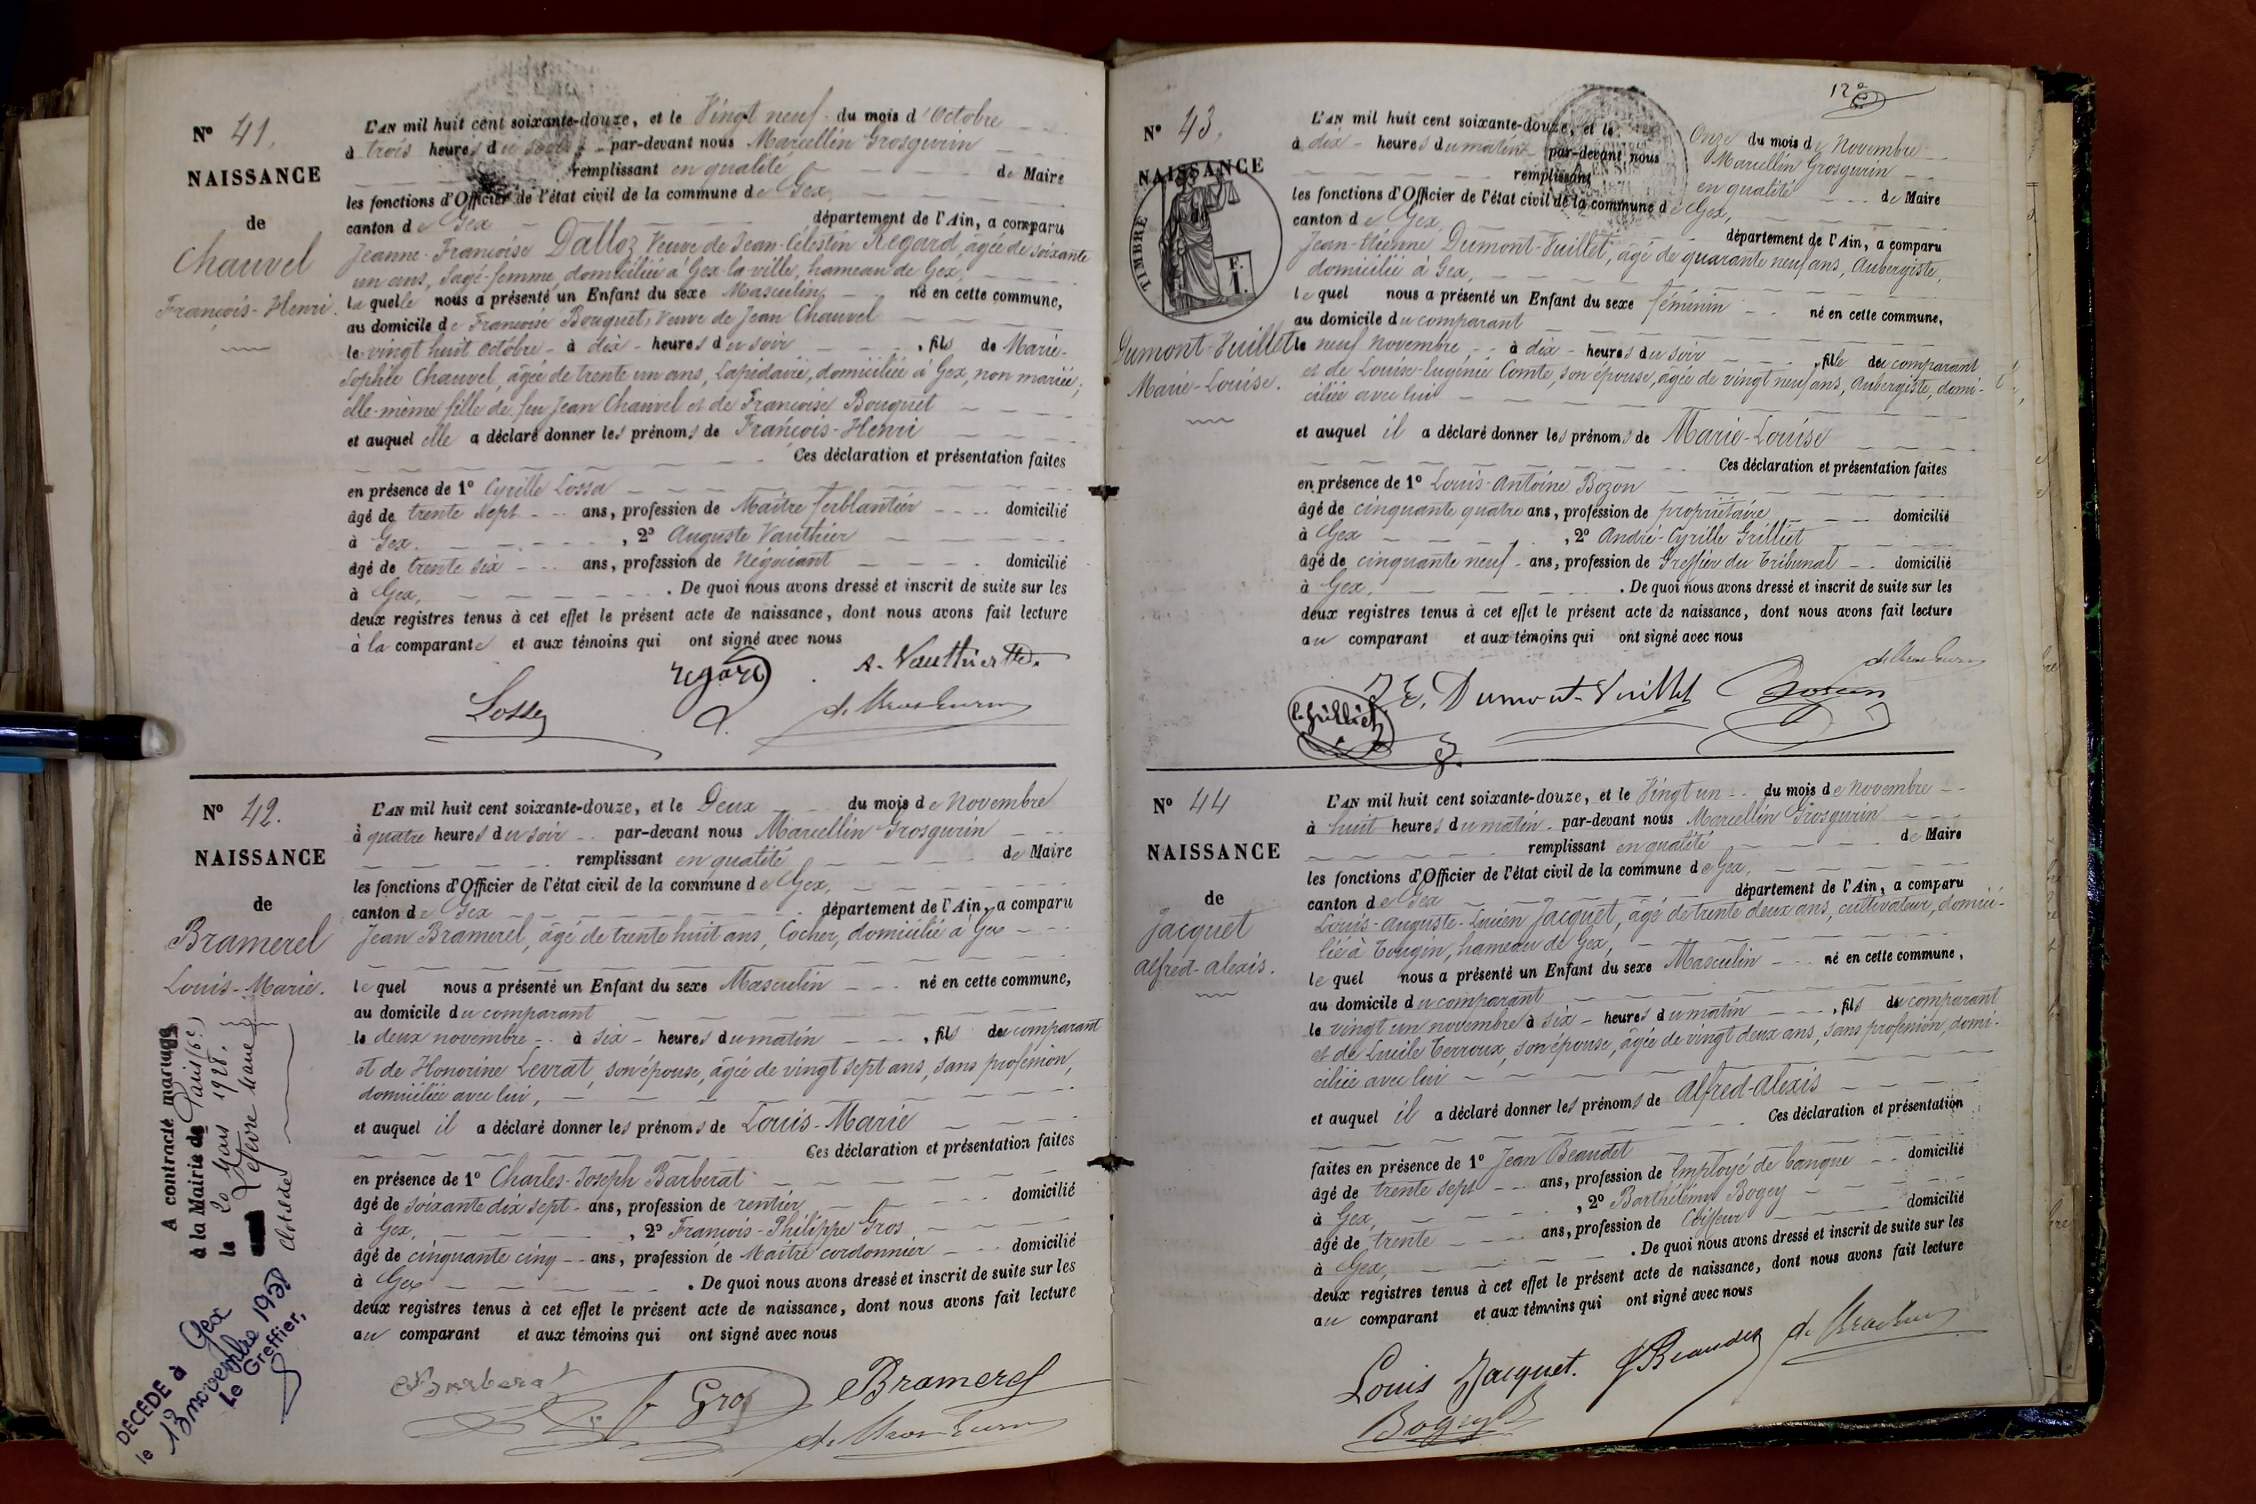 N° 41.
NAISSANCE
de
Chauvel
François-Henri.
L'AN mil huit cent soixante-douze, et le Vingt neuf du mois d'Octobre
à trois heures du soir par-devant nous Marcellin Grosgurin
remplissant en qualité de Maire
les fonctions d'Officier de l'état civil de la commune de Gex,
canton de Gex département de l'Ain, a comparu
Jeanne-Françoise Dalloz Veuve de Jean-Célestin Regard, âgée de soixante
un ans, Sage-femme, domiciliée à Gex-la-ville, hameau de Gex,
laquelle nous a présenté un Enfant du sexe Masculin né en cette commune,
au domicile de Françoise Bouquet, Veuve de Jean Chauvel
le vingt huit Octobre à dix heures du soir, fils de Marie-
Sophie Chauvel, âgée de trente un ans, Lapidaire, domiciliée à Gex, non mariée;
elle-même fille de feu Jean Chauvel et de Françoise Bouquet
et auquel elle a déclaré donner les prénoms de François-Henri
Ces déclaration et présentation faites
en présence de 1° Cyrille Lossa
âgé de trente sept ans, profession de Maître ferblantier domicilié
à Gex. , 2° Auguste Vauthier
âgé de trente six ans, profession de Négociant domicilié
à Gex, . De quoi nous avons dressé et inscrit de suite sur les
deux registres tenus à cet effet le présent acte de naissance, dont nous avons fait lecture
à la comparante et aux témoins qui ont signé avec nous
regard A. Vauthier
Lossa
N° 42.
NAISSANCE
de
Bramerel
Louis-Marie.
A contracté mariage
à la Mairie de Paris (6e)
le 20 Mars 1928.
Lefèvre Marie
Clotilde
DÉCÉDÉ à Gex
le 13 novembre 1938
Le Greffier,
L'AN mil huit cent soixante-douze, et le Deux du mois de Novembre
à quatre heures du soir par-devant nous Marcellin Grosgurin
remplissant en qualité de Maire
les fonctions d'Officier de l'état civil de la commune de Gex,
canton de Gex département de l'Ain, a comparu
Jean Bramerel, âgé de trente huit ans, Cocher, domicilié à Gex
lequel nous a présenté un Enfant du sexe Masculin né en cette commune,
au domicile du comparant
le deux novembre à six heures du matin, fils du comparant
et de Honorine Levrat, son épouse, âgée de vingt sept ans, sans profession,
domiciliée avec lui,
et auquel il a déclaré donner les prénoms de Louis-Marie
Ces déclaration et présentation faites
en présence de 1° Charles-Joseph Barberat
âgé de soixante dix sept ans, profession de rentier domicilié
à Gex, , 2° François-Philippe Gros
âgé de cinquante cinq ans, profession de Maître cordonnier domicilié
à Gex . De quoi nous avons dressé et inscrit de suite sur les
deux registres tenus à cet effet le présent acte de naissance, dont nous avons fait lecture
au comparant et aux témoins qui ont signé avec nous
Barberat Gros Bramerel
N° 43.
NAISSANCE
TIMBRE
F.
1.
Dumont-Vuillet
Marie-Louise.
L'AN mil huit cent soixante-douze, et le Onze du mois de Novembre
à dix heures du matin par-devant nous Marcellin Grosgurin
remplissant en qualité de Maire
les fonctions d'Officier de l'état civil de la commune de Gex,
canton de Gex, département de l'Ain, a comparu
Jean-Etienne Dumont-Vuillet, âgé de quarante neuf ans, Aubergiste,
domicilié à Gex,
lequel nous a présenté un Enfant du sexe féminin né en cette commune,
au domicile du comparant
le neuf Novembre, à dix heures du soir, fille du comparant
et de Louise-Eugénie Comte, son épouse, âgée de vingt neuf ans, Aubergiste, domi-
ciliée avec lui
et auquel il a déclaré donner les prénoms de Marie-Louise
Ces déclaration et présentation faites
en présence de 1° Louis-Antoine Bozon
âgé de cinquante quatre ans, profession de propriétaire domicilié
à Gex , 2° André-Cyrille Grilliet
âgé de cinquante neuf ans, profession de Greffier du Tribunal domicilié
à Gex, . De quoi nous avons dressé et inscrit de suite sur les
deux registres tenus à cet effet le présent acte de naissance, dont nous avons fait lecture
au comparant et aux témoins qui ont signé avec nous
J. E. Dumont-Vuillet Bozon
N° 44
NAISSANCE
de
Jacquet
Alfred-Alexis.
L'AN mil huit cent soixante-douze, et le Vingt un du mois de Novembre
à huit heures du matin par-devant nous Marcellin Grosgurin
remplissant en qualité de Maire
les fonctions d'Officier de l'état civil de la commune de Gex,
canton de Gex département de l'Ain, a comparu
Louis-Auguste-Lucien Jacquet, âgé de trente deux ans, cultivateur, domici-
lié à Tougin, hameau de Gex,
lequel nous a présenté un Enfant du sexe Masculin né en cette commune,
au domicile du comparant
le vingt un novembre à six heures du matin, fils du comparant
et de Lucile Terroux, son épouse, âgée de vingt deux ans, sans profession, domi-
ciliée avec lui
et auquel il a déclaré donner les prénoms de Alfred-Alexis
Ces déclaration et présentation
faites en présence de 1° Jean Beaudet
âgé de trente sept ans, profession de Employé de banque domicilié
à Gex, , 2° Barthélémy Bogey
âgé de trente ans, profession de Coiffeur domicilié
à Gex, . De quoi nous avons dressé et inscrit de suite sur les
deux registres tenus à cet effet le présent acte de naissance, dont nous avons fait lecture
au comparant et aux témoins qui ont signé avec nous
Louis Jacquet. J Beaudet
Bogey B